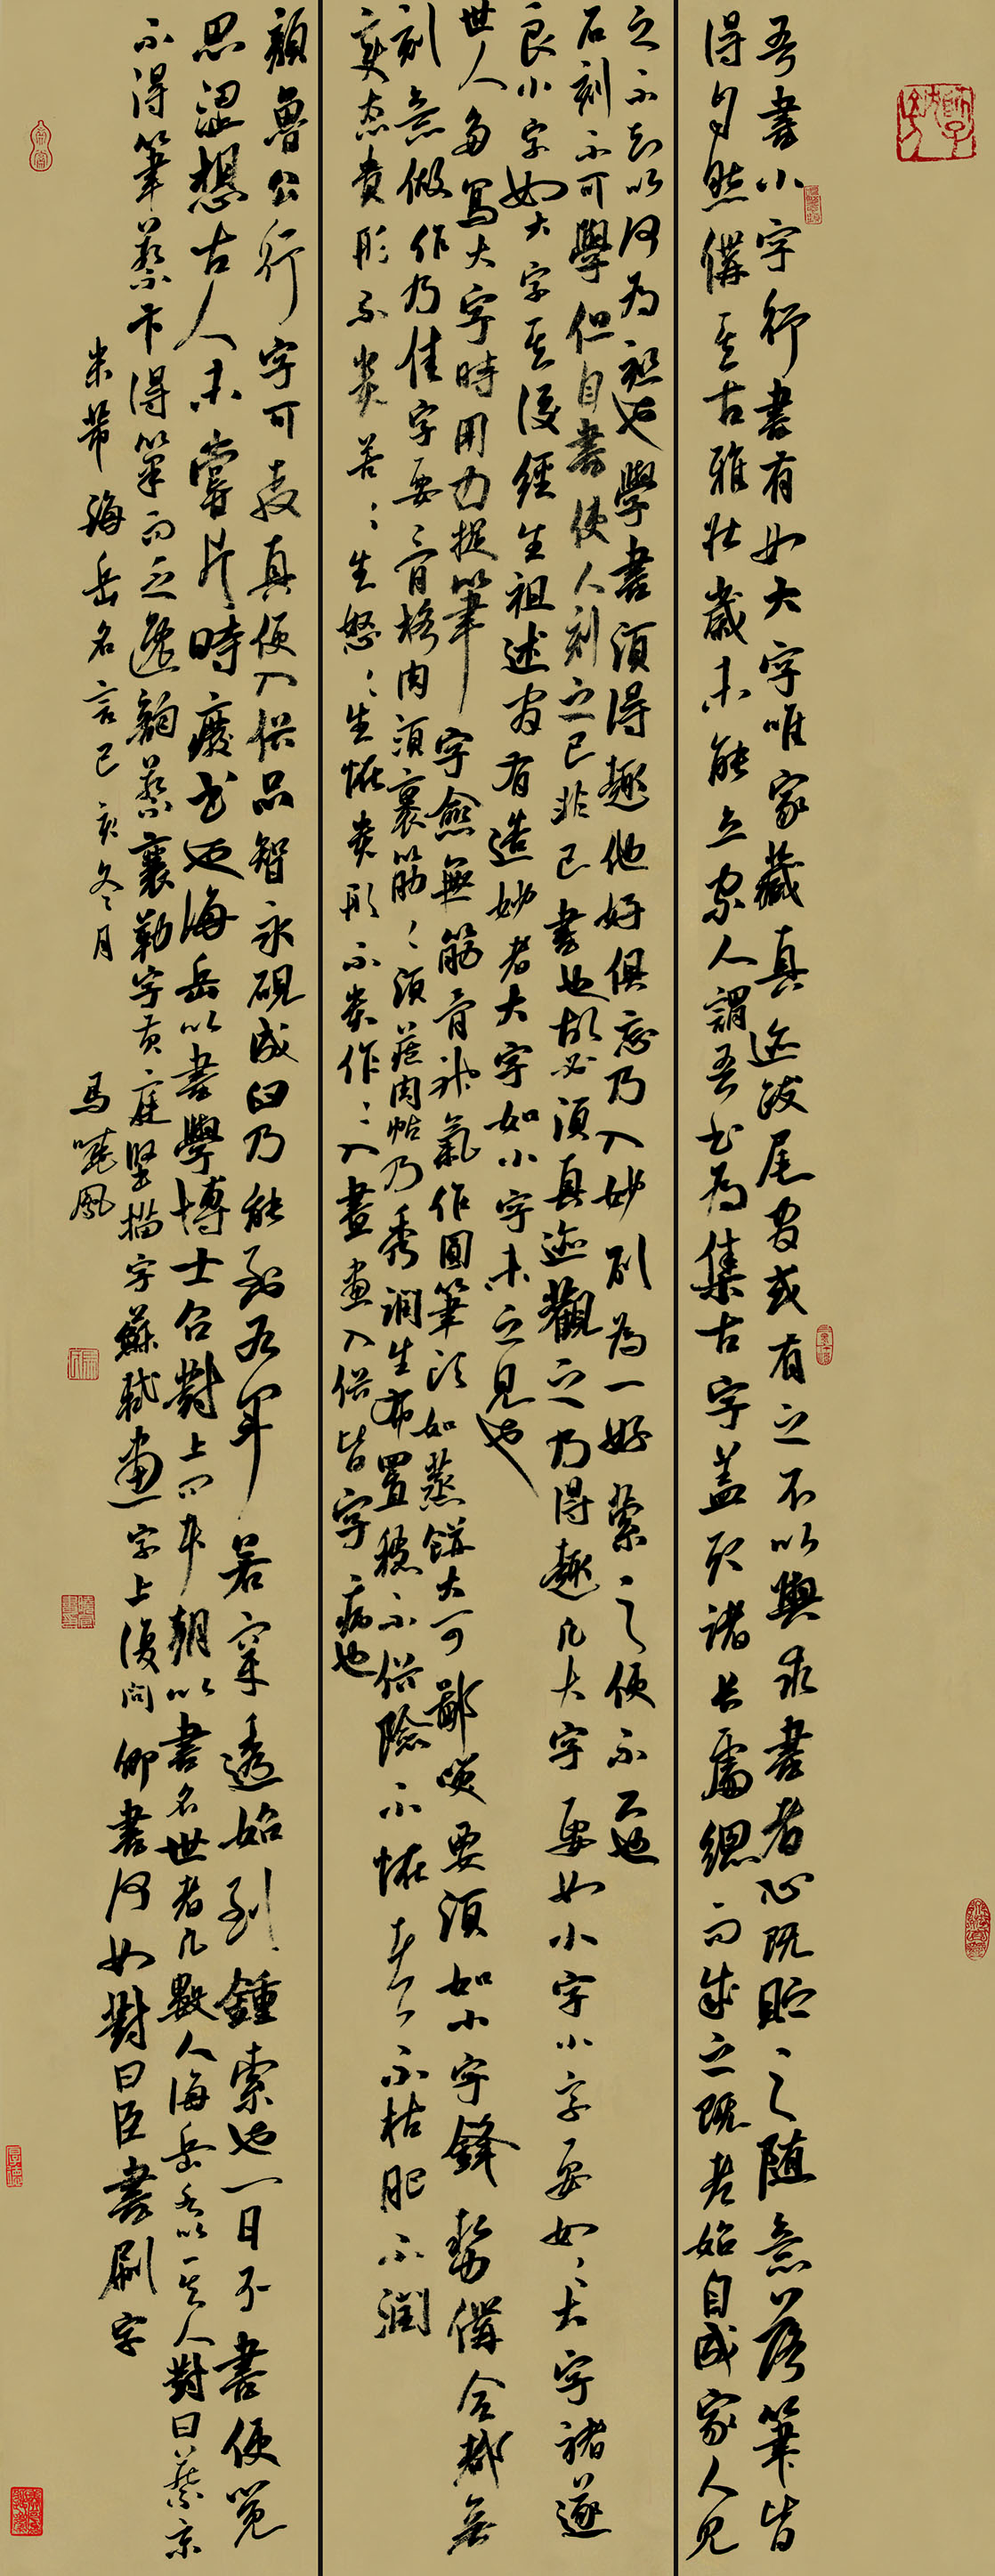 吾書小字行書有如大字唯家藏真迹跋尾間或有之不以與求書者心既貯之隨意落筆皆
得自然備其古雅壯歲未能立家人謂吾書為集古字蓋取諸長處總而成之既老始自成家人見
之不知以何為祖也學書須得趣他好俱忘乃入妙別為一好縈之便不工也
石刻不可學但自書使人刻之已非己書也故必須真迹觀之乃得趣凡大字要如小字小字要如大字褚遂
良小字如大字其後經生祖述間有造妙者大字如小字未之見也
世人多寫大字時用力捉筆字愈無筋骨神氣作圓筆頭如蒸餅大可鄙笑要須如小字鋒勢備全都無
刻意做作乃佳字要骨格肉須裹筋筋須藏肉帖乃秀潤生布置穩不俗險不怪老不枯肥不潤
變態貴形不貴苦苦生怒怒生怪貴形不貴作作入畫畫入俗皆字病也
顏魯公行字可教真便入俗品智永硯成臼乃能到右軍若穿透始到鍾索也一日不書便覺
思澀想古人未嘗片時廢書也海岳以書學博士召對上問本朝以書名世者凡數人海岳各以其人對曰蔡京
不得筆蔡卞得筆而乏逸韻蔡襄勒字黃庭堅描字蘇軾畫字上復問卿書何如對曰臣書刷字
米芾海岳名言己亥冬月
馬曉鳳